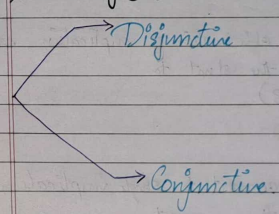 Disjunctive
Conjunctive